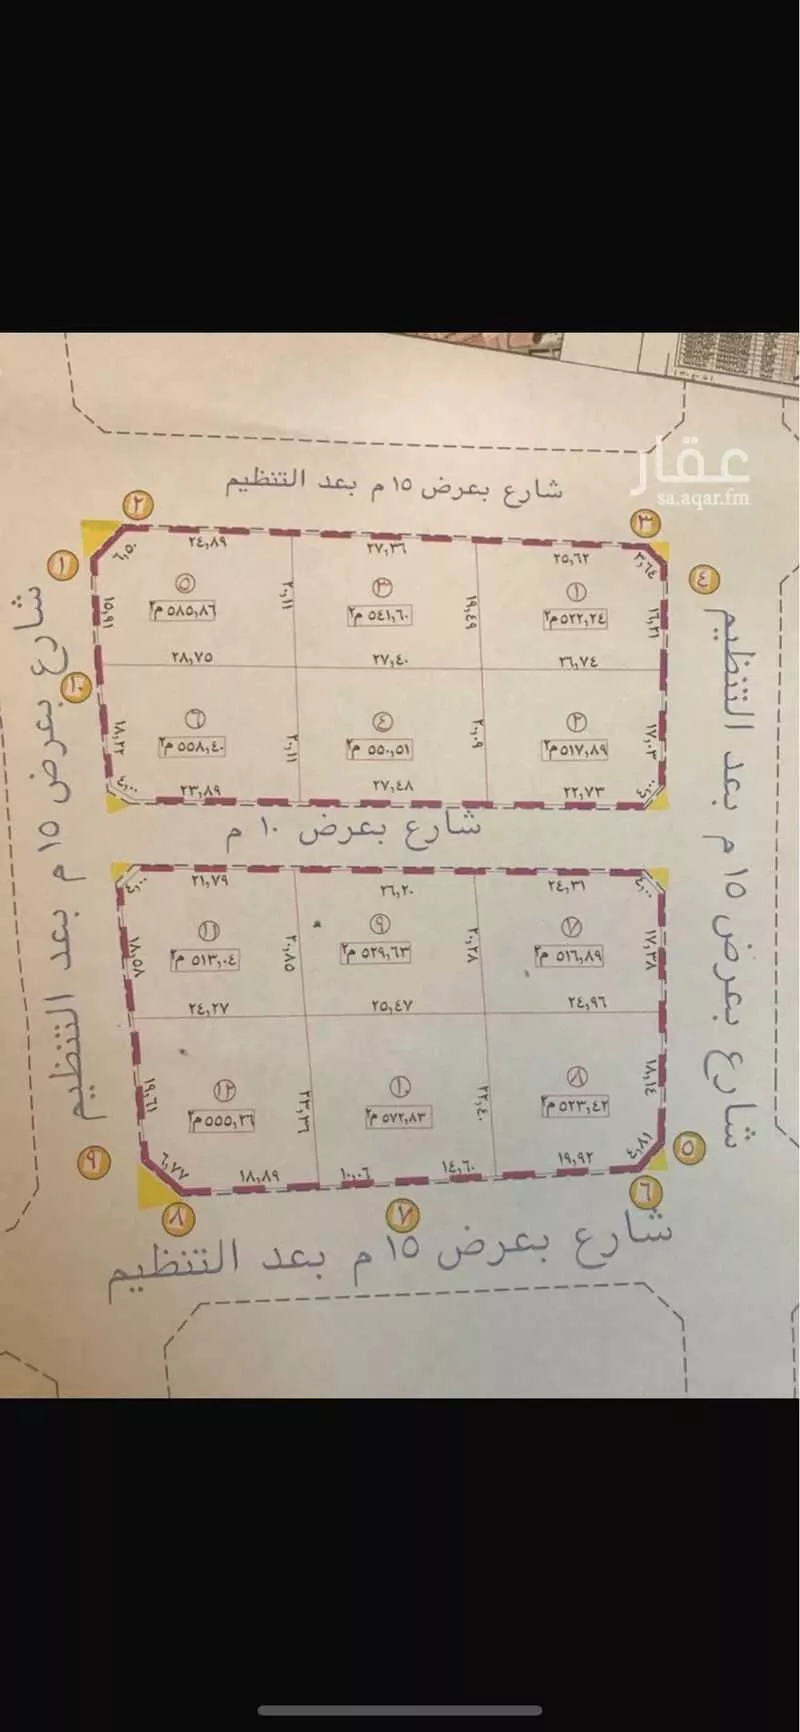 عقار
sa.aqar.fm
شارع بعرض ١٥ م بعد التنظيم
٢
٣
١
٤
٢٤,٨٩
٢٧,٣٦
٢٥,٦٢
٦,٥٠
٣,٦٤
١
٥٢٢,٢٤ م٢
٣
٥٤١,٦٠ م٢
٥
٥٨٥,٨٦ م٢
١٥,٩١
٢٠,١١
١٩,٤٩
١٦,٢١
٢٨,٧٥
٢٧,٤٠
٢٦,٧٤
١٠
٢
٥١٧,٨٩ م٢
٤
٥٥٠,٥١ م٢
٦
٥٥٨,٤٠ م٢
١٨,٢٢
٢٠,١١
٢٠,٠٩
١٧,٠٣
٤,٠٠
٢٣,٨٩
٢٧,٤٨
٢٢,٧٣
٤,٠٠
شارع بعرض ١٠ م
شارع بعرض ١٥ م بعد التنظيم
شارع بعرض ١٥ م بعد التنظيم
٤,٠٠
٢١,٧٩
٢٦,٢٠
٢٤,٣١
٤,٠٠
٧
٥١٦,٨٩ م٢
٩
٥٢٩,٦٣ م٢
١١
٥١٣,٠٤ م٢
١٨,٥٨
٢٠,٨٥
٢٠,٢٨
١٧,٣٨
٢٤,٢٧
٢٥,٤٧
٢٤,٩٦
٨
٥٢٣,٤٢ م٢
١٠
٥٧٢,٨٣ م٢
١٢
٥٥٥,٢٦ م٢
١٩,٦١
٢٣,٣٦
٢٢,٤٠
١٨,١٤
٩
٥
٦,٧٧
١٨,٨٩
١٠,٠٦
١٤,٦٠
١٩,٩٢
٨
٧
٦
شارع بعرض ١٥ م بعد التنظيم